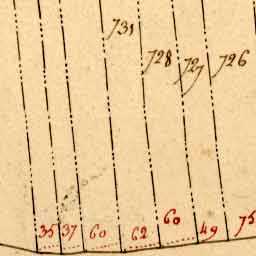 731
728 727 726
35 37 60 62 60 49 75